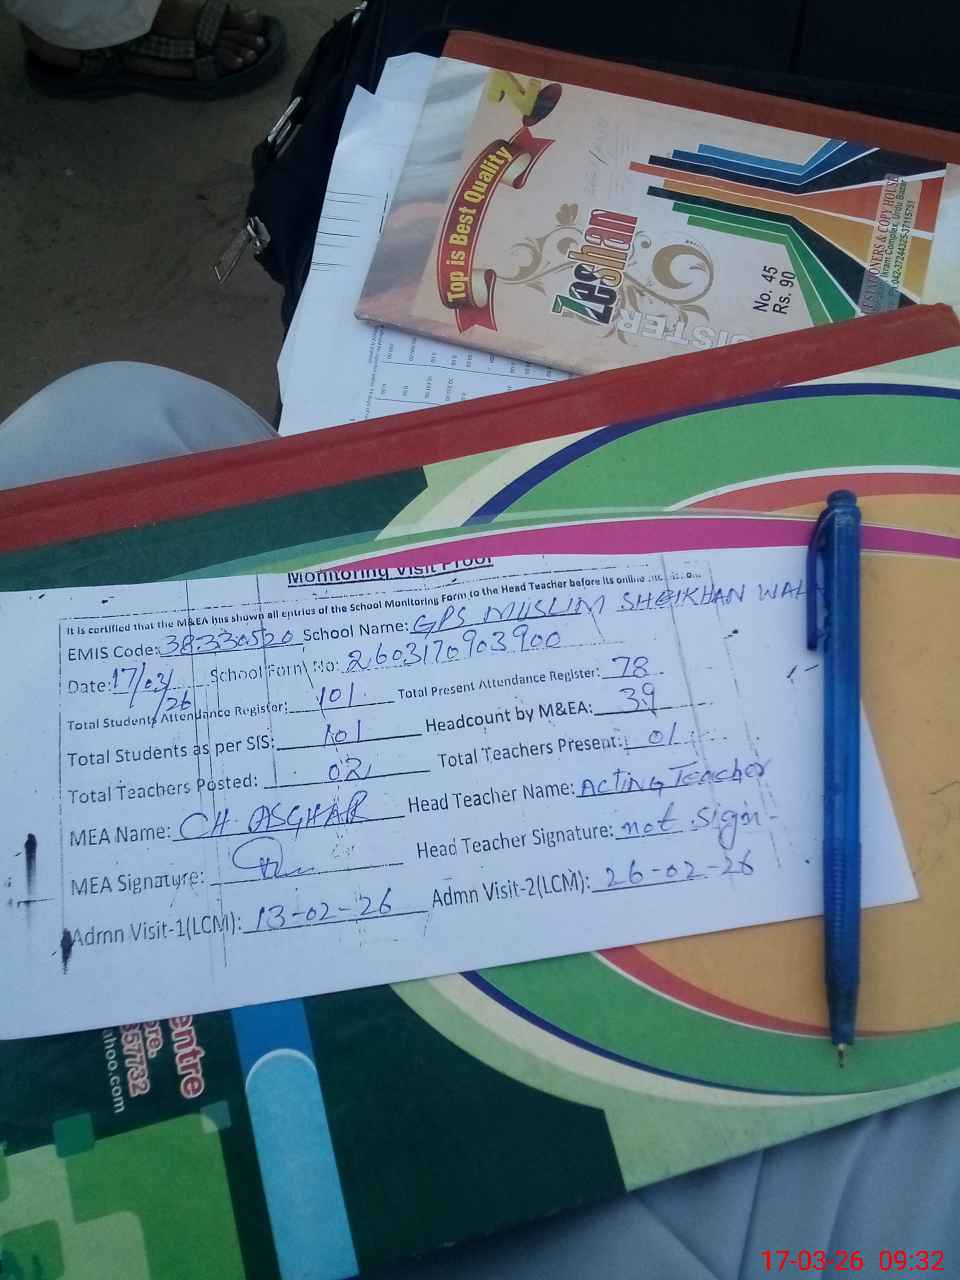 Z
Top is Best Quality
Zeshan
No. 45
Rs. 90
STATIONERS & COPY HOUSE
Monitoring Visit Proof
It is certified that the M&EA has shown all entries of the School Monitoring Form to the Head Teacher before its online
EMIS Code: 38330520 School Name: GPS MUSLIM SHEIKHAN WALA
Date: 17/03/26 School Form No: 2603170903900
Total Students Attendance Register: 101 Total Present Attendance Register: 78
Total Students as per SIS: 101 Headcount by M&EA: 39
Total Teachers Posted: 02 Total Teachers Present: 01
MEA Name: CH. ASGHAR Head Teacher Name: ACTING Teacher
MEA Signature: Head Teacher Signature: not sign
Admn Visit-1(LCM): 13-02-26 Admn Visit-2(LCM): 26-02-26
entre
ore.
57732
ahoo.com
17-03-26 09:32